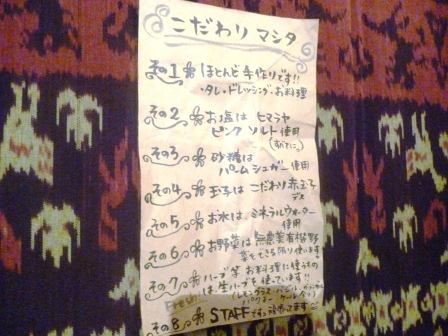 こだわりマシタ
その1 ほとんど手作りです!!
・タレ・ドレッシング・お料理
その2 お塩は ヒマラヤ
ピンク ソルト使用
(すべてに)
その3 砂糖は
パームシュガー使用
その4 玉子はこだわり赤玉子
デス
その5 お水はミネラルウォーター
使用
その6 お野菜は無農薬有機野
菜をできる限り使います
その7 ハーブ等 お料理に使うもの
は生ハーブを使っています!!
(レモングラス・バジル
パクチー
その8 STAFFです